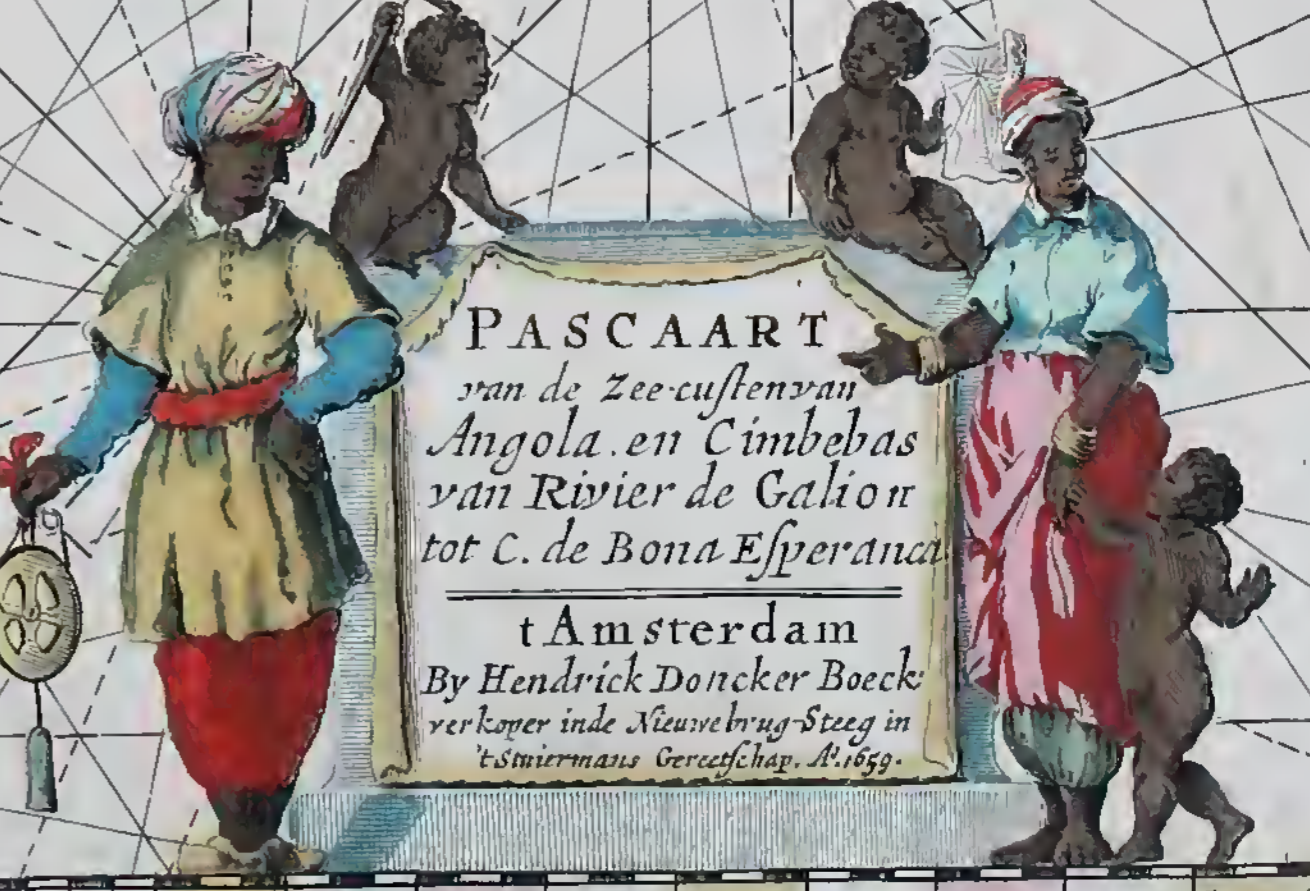 PASCAART
van de Zee-custen van
Angola. en Cimbebas
van Rivier de Galion
tot C. de Bona Esperanca
t Amsterdam
By Hendrick Doncker Boeck:
verkoper inde Nieuwebrug-Steeg in
't Stuiermans Gereetschap. A°. 1659.